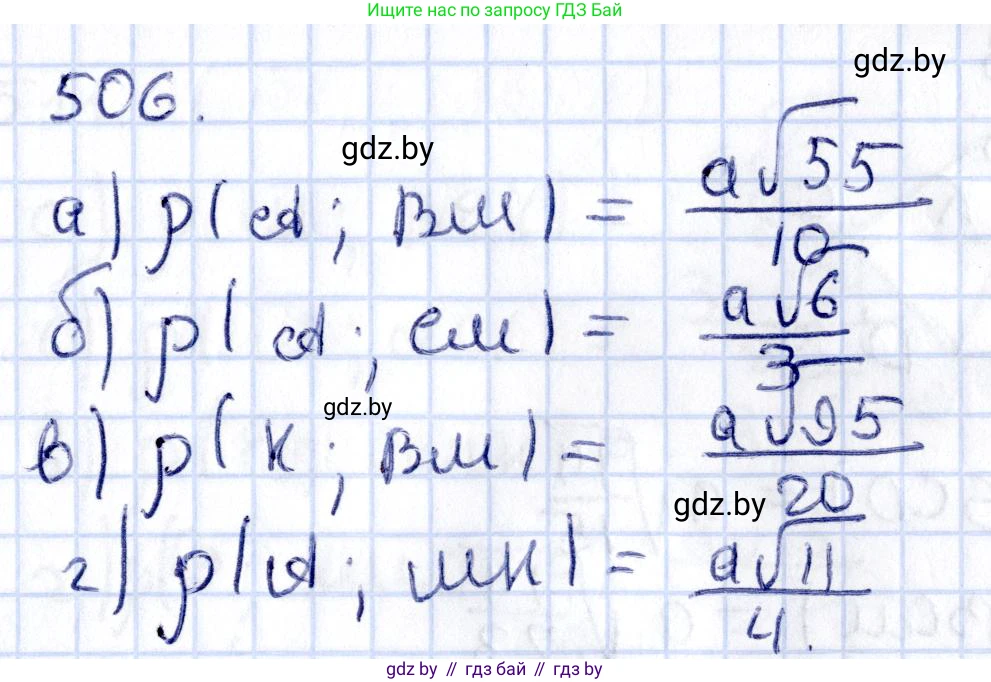 Ищите нас по запросу ГДЗ Бай
gdz.by
506.
gdz.by
а) ρ(A; BM) = a√55/10
б) ρ(A; CM) = a√6/3
в) ρ(K; BM) = a√95/20
gdz.by
gdz.by
г) ρ(A; MK) = a√11/4.
gdz.by // гдз бай // гдз by